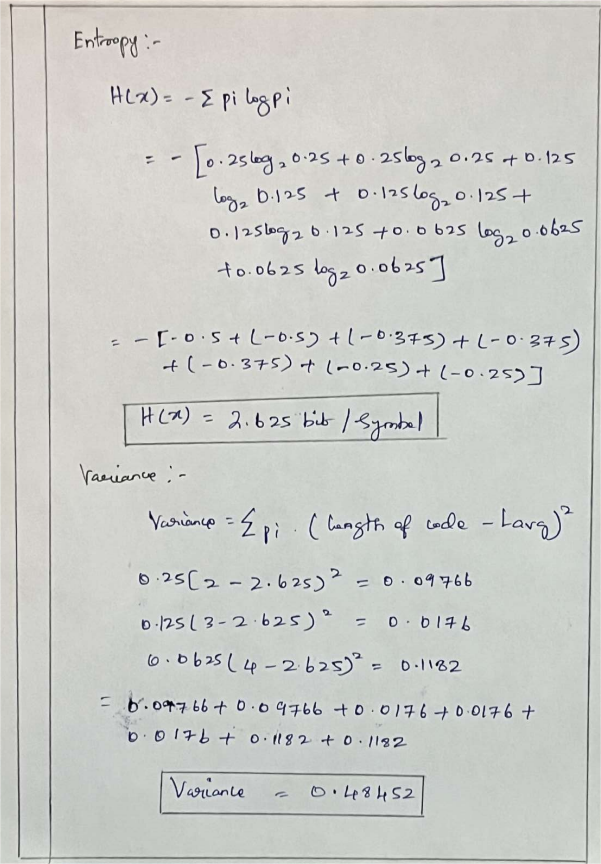 Entroopy :-
H(x) = - Σ pi log pi
= - [0.25 log₂ 0.25 + 0.25 log₂ 0.25 + 0.125
log₂ 0.125 + 0.125 log₂ 0.125 +
0.125 log₂ 0.125 + 0.0625 log₂ 0.0625
+ 0.0625 log₂ 0.0625]
= - [-0.5 + (-0.5) + (-0.375) + (-0.375)
+ (-0.375) + (-0.25) + (-0.25)]
H(x) = 2.625 bit / Symbol
Variance :-
Variance = Σ pi . (length of code - Lavg)²
0.25(2 - 2.625)² = 0.09766
0.125(3 - 2.625)² = 0.0176
0.0625(4 - 2.625)² = 0.1182
= 0.09766 + 0.09766 + 0.0176 + 0.0176 +
0.0176 + 0.1182 + 0.1182
Variance = 0.48452